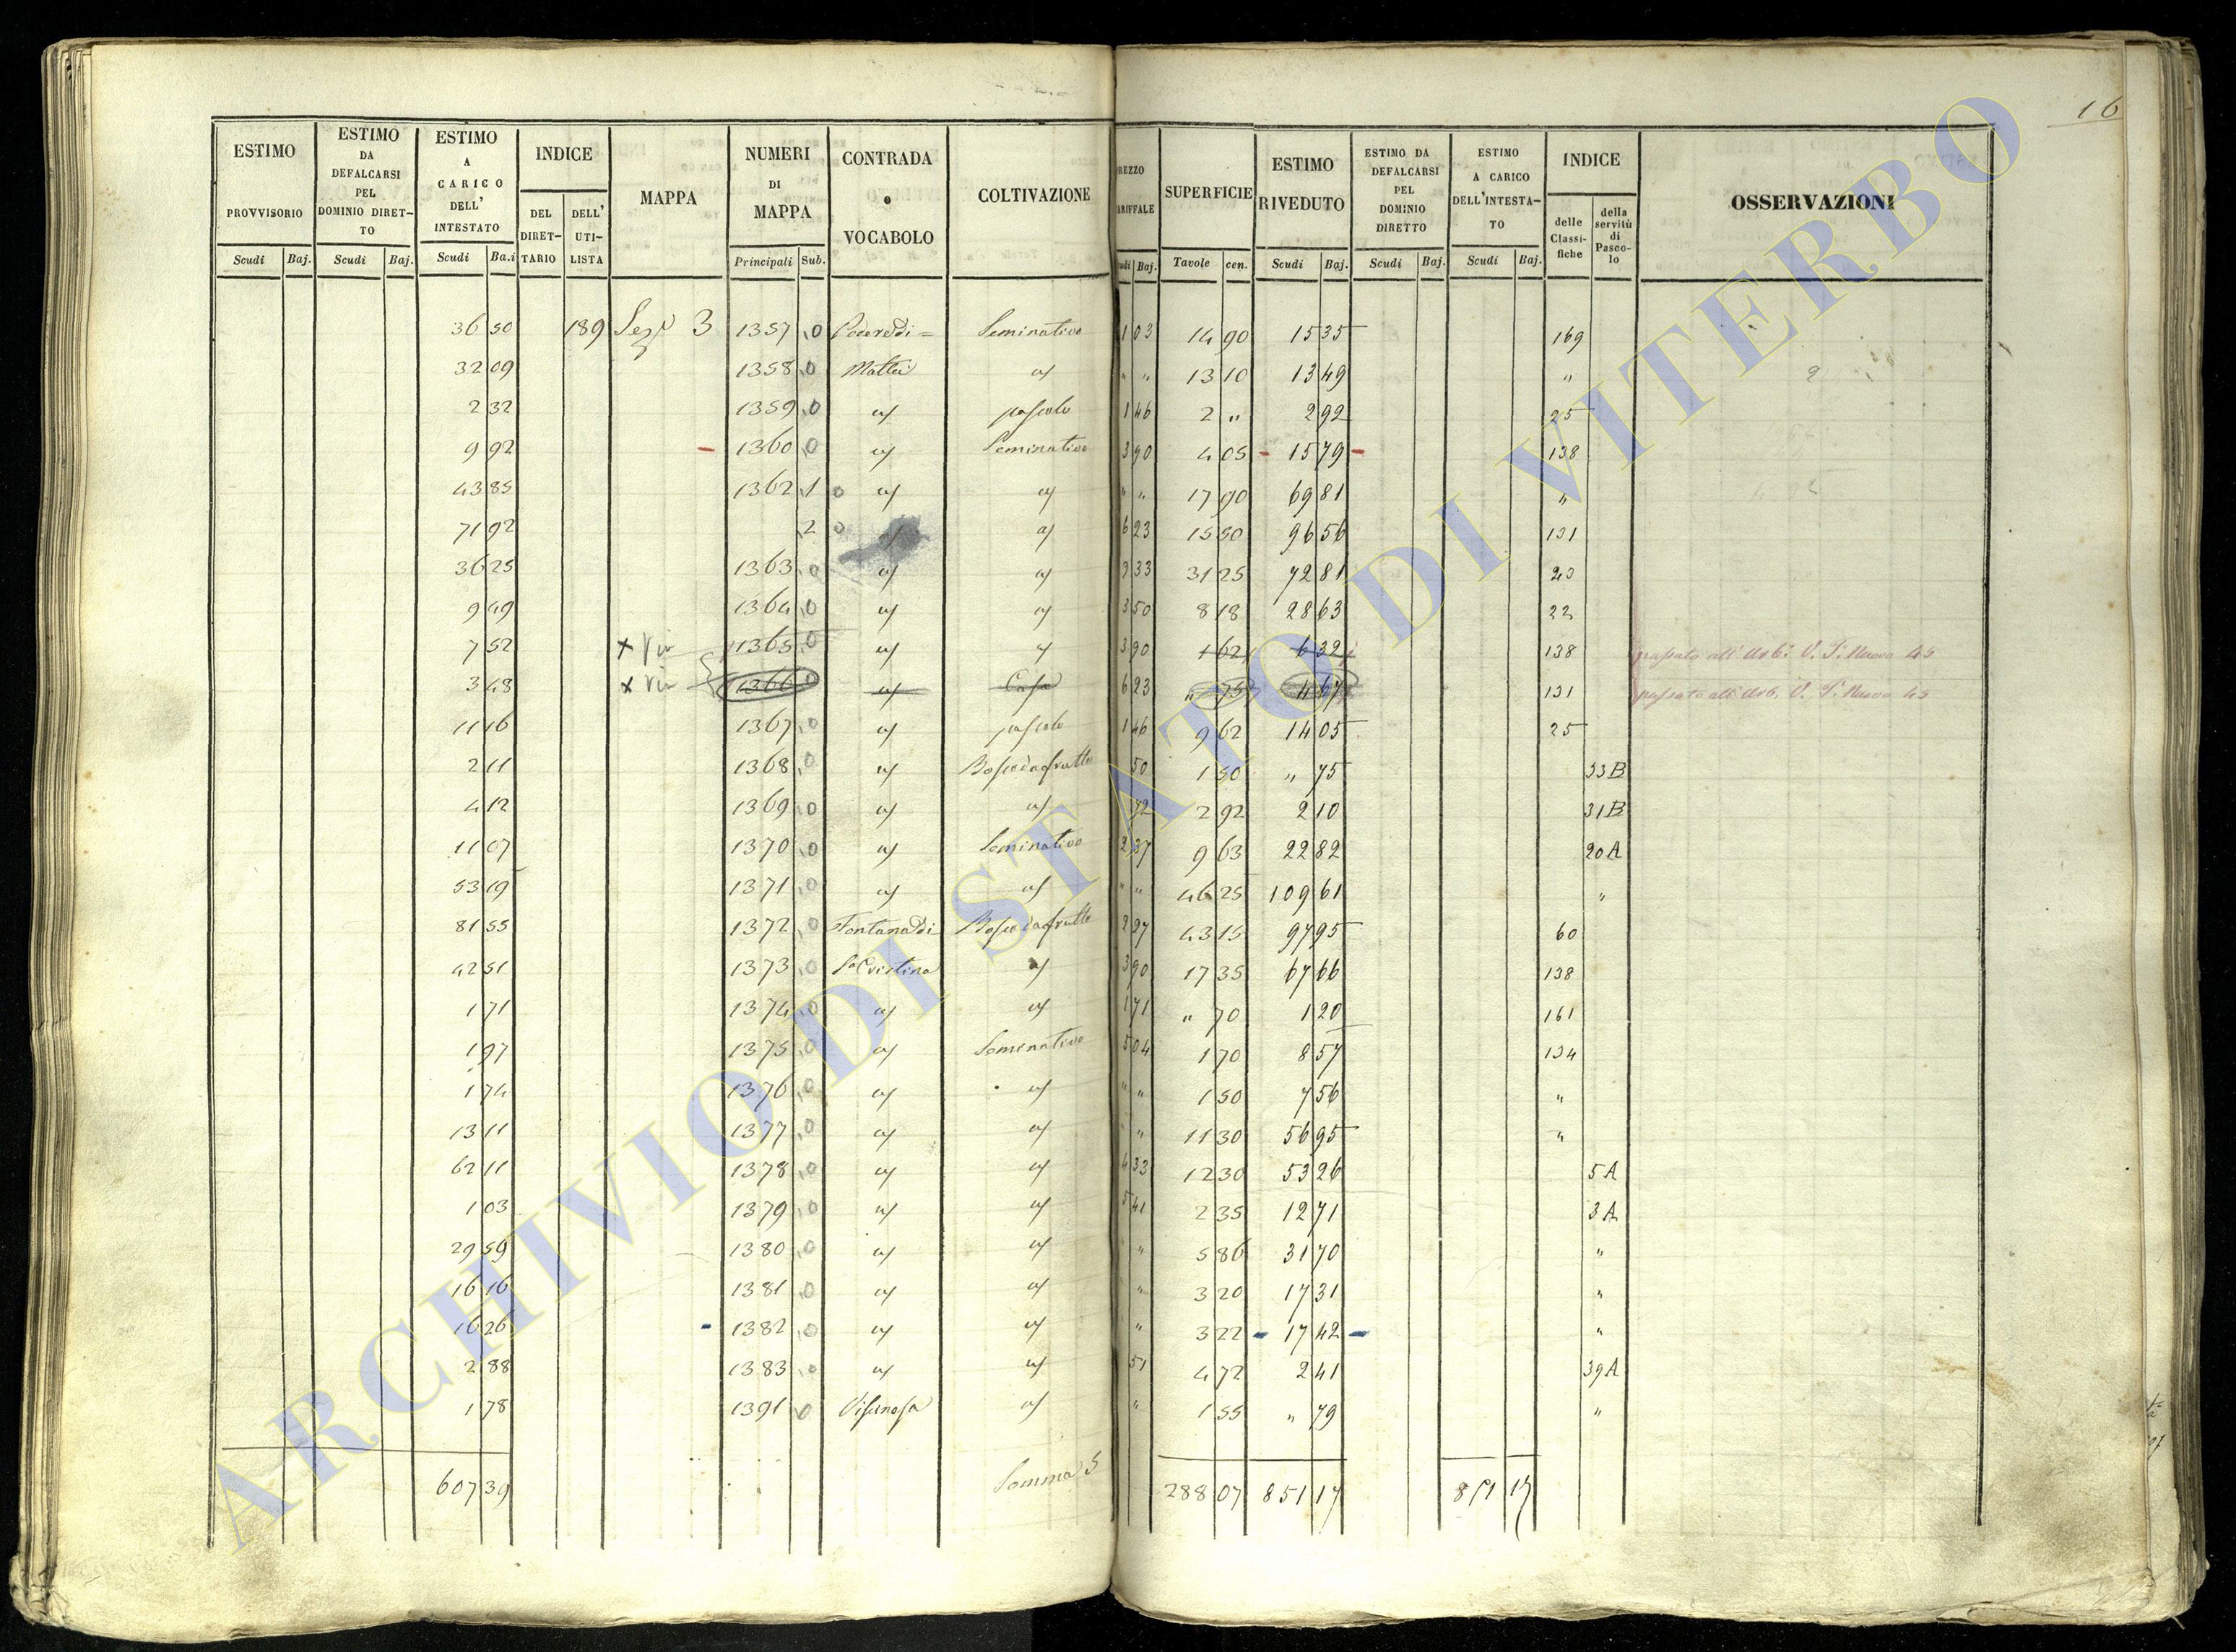 16
ESTIMO PROVVISORIO Scudi Baj.
ESTIMO DA DEFALCARSI PEL DOMINIO DIRET-TO Scudi Baj.
ESTIMO A CARICO DELL' INTESTATO Scudi Ba.i
INDICE DEL DIRET-TARIO DELL' UTI-LISTA
MAPPA
NUMERI DI MAPPA Principali Sub.
CONTRADA o VOCABOLO
COLTIVAZIONE
REZZO ARIFFALE udi Baj.
SUPERFICIE Tavole cen.
ESTIMO RIVEDUTO Scudi Baj.
ESTIMO DA DEFALCARSI PEL DOMINIO DIRETTO Scudi Baj.
ESTIMO A CARICO DELL'INTESTA-TO Scudi Baj.
INDICE delle Classi-fiche della servitù di Pasco-lo
OSSERVAZIONI
36 50 189 3 1357 0 Seminativo 1 03 14 90 15 35 169
32 09 1358 0 Mattei " " 13 10 13 49 "
2 32 1359 0 pascolo 1 46 2 " 2 92 25
9 92 1360 0 Seminativo 3 90 4 05 15 79 138
43 85 1362 1 0 " " 17 90 69 81 "
71 92 2 0 6 23 15 50 96 56 131
36 25 1363 0 2 33 31 25 72 81 23
9 49 1364 0 3 50 8 18 28 63 22
7 52 1365 0 3 90 1 62 6 32 138 passato all' Urb. V. T. Nuovo 45
3 48 1366 0 Casa 6 23 " 75 4 67 131 passato all' Urb. V. T. Nuovo 45
11 16 1367 0 pascolo 1 46 9 62 14 05 25
2 11 1368 0 Bosco da frutto 50 1 50 " 75 33 B
4 12 1369 0 72 2 92 2 10 31 B
11 07 1370 0 Seminativo 2 37 9 63 22 82 20 A
53 19 1371 0 " " 46 25 109 61 "
81 55 1372 0 Fontana di Bosco da frutto 2 27 43 15 97 95 60
42 51 1373 0 Sa Cristina 3 90 17 35 67 66 138
1 71 1374 0 1 71 " 70 1 20 161
1 97 1375 0 Seminativo 5 04 1 70 8 57 134
1 74 1376 0 " " 1 50 7 56 "
13 11 1377 0 " 11 30 56 95 "
62 11 1378 0 4 33 12 30 53 26 5 A
1 03 1379 0 5 41 2 35 12 71 3 A
29 59 1380 0 " 5 86 31 70 "
16 16 1381 0 " 3 20 17 31 "
16 26 1382 0 " 3 22 17 42 "
2 88 1383 0 51 4 72 2 41 39 A
1 78 1391 0 " 1 55 " 79 "
607 39 Somma S 288 07 851 17 851 17
ARCHIVIO DI STATO DI VITERBO